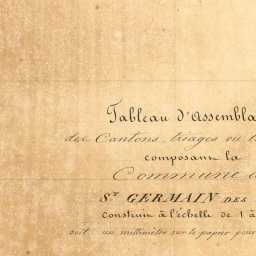 Tableau d'Assembla
des Cantons, triages ou l
composant la
Commune d
St GERMAIN DES
construit à l'échelle de 1 à
soit un millimètre sur le papier pour